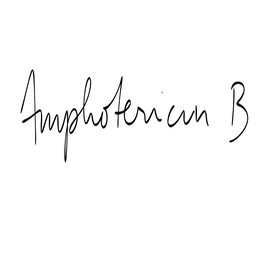 Amphotericin B